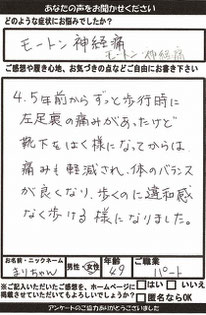 あなたの声をお聞かせください
どのような症状にお悩みでしたか?
モートン神経痛
モートン神経痛
ご感想や履き心地、お気づきの点などご自由にお書き下さい
4.5年前からずっと歩行時に
左足裏の痛みがあったけど
靴下をはく様になってからは
痛みも軽減され、体のバランス
が良くなり、歩くのに違和感
なく歩ける様になりました。
お名前・ニックネーム
まりちゃん
男性・女性
年齢
49
ご職業
パート
※ご記入いただいたご感想を、ホームページに
掲載させていただいてもよろしいでしょうか?
はい
いいえ
匿名ならOK
アンケートのご協力ありがとうございました